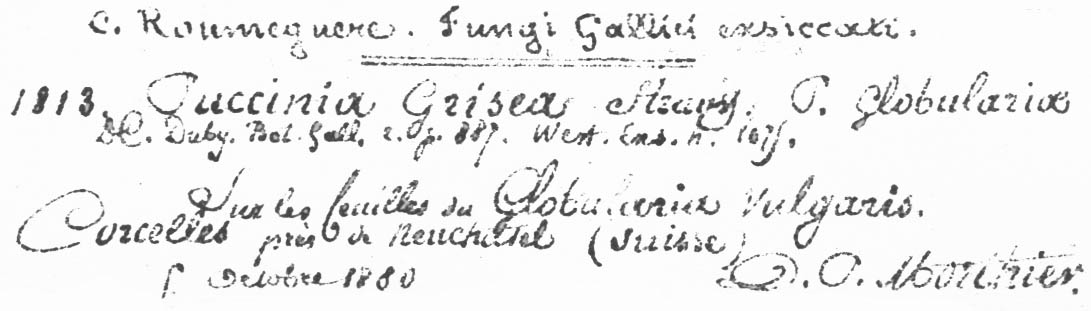 C. Roumeguere. Fungi Gallici exsiccati.
1813. Puccinia Grisea Strauss. P. Globulariæ
DC. Duby. Bot. Gall. 2. p. 887. West. Exs. n.
Sur les feuilles du Globularia Vulgaris.
Corcelles près de Neuchâtel (Suisse)
Octobre 1880
D. P. Morthier.